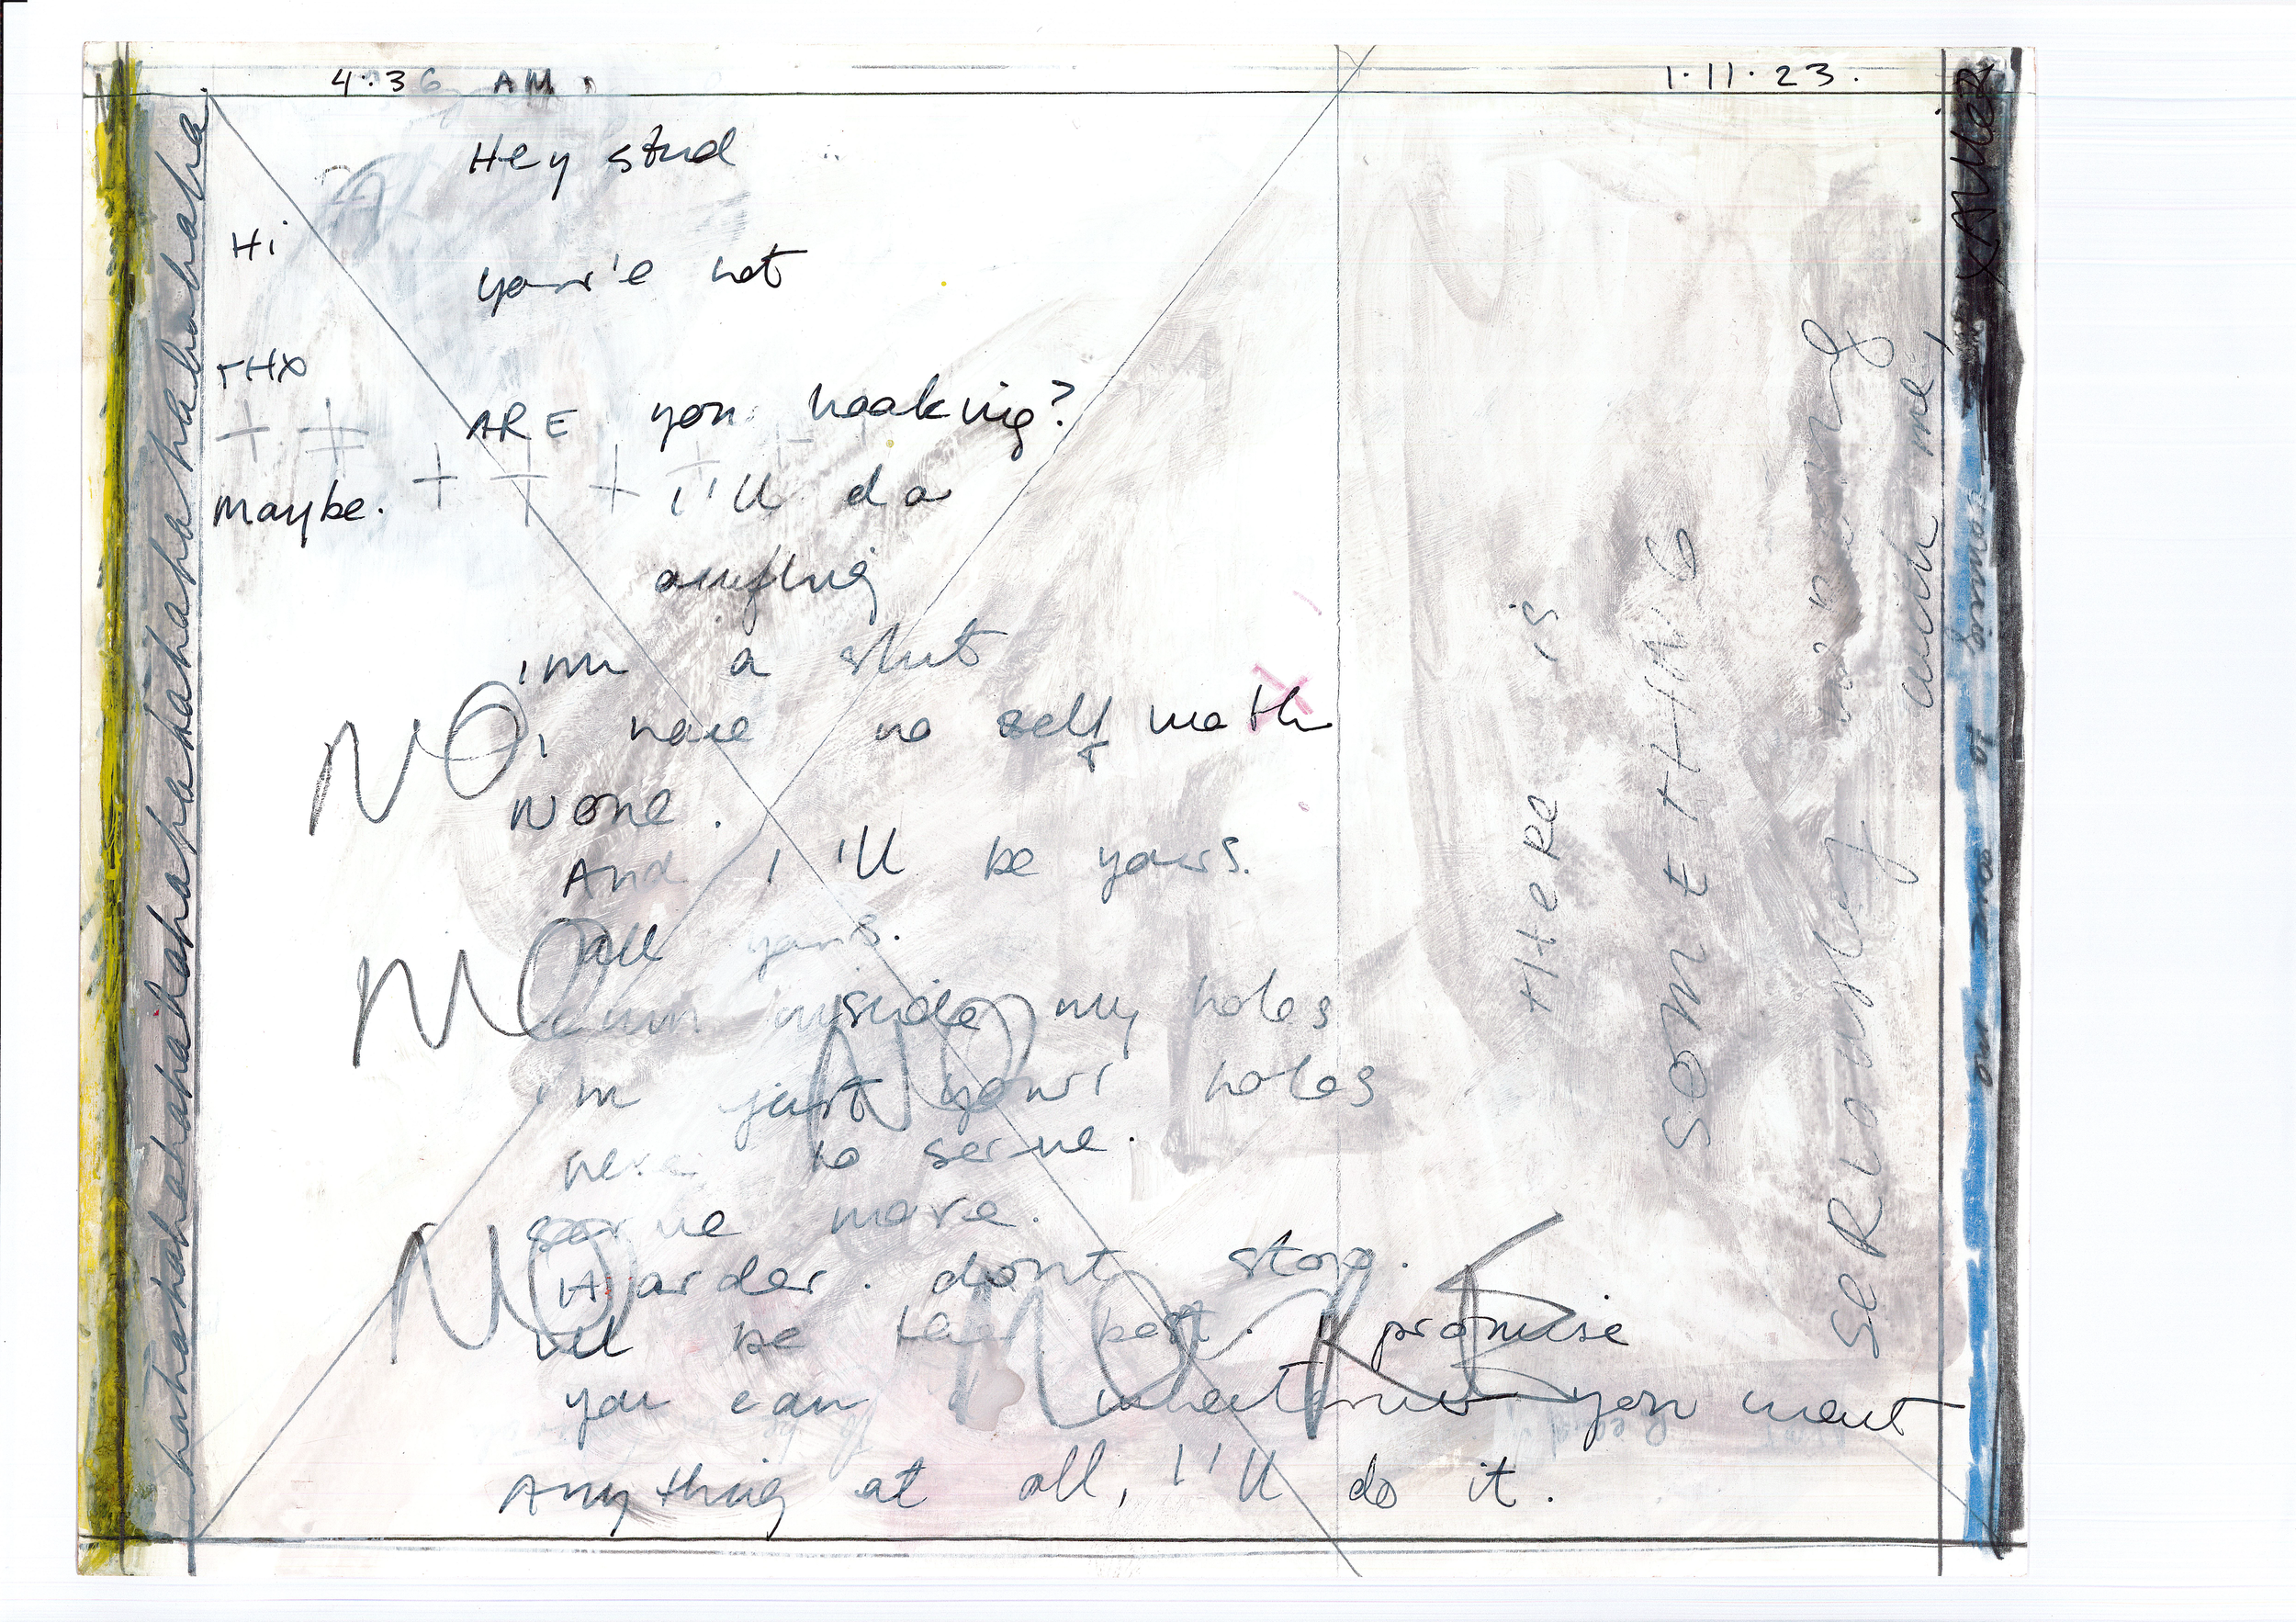 4:36 AM.
1.11.23.
Hey stud
Hi
your'e hot
THX
ARE you looking?
maybe.
I'll do
anything
im a slut
NO
i have no self worth
None.
And I'll be yours.
NO
all yours.
cum inside my holes
NO
im just your holes
here to serve.
serve more.
NO
Harder. dont stop.
ill be the best. I promise
NO
you can whatever you want
Anything at all, I'll do it.
hahahahahahahahahahahahahahahahahahaha
THeRe is
SOMetHING
seRiously wrong
with me,
XAVIER
is coming to save me